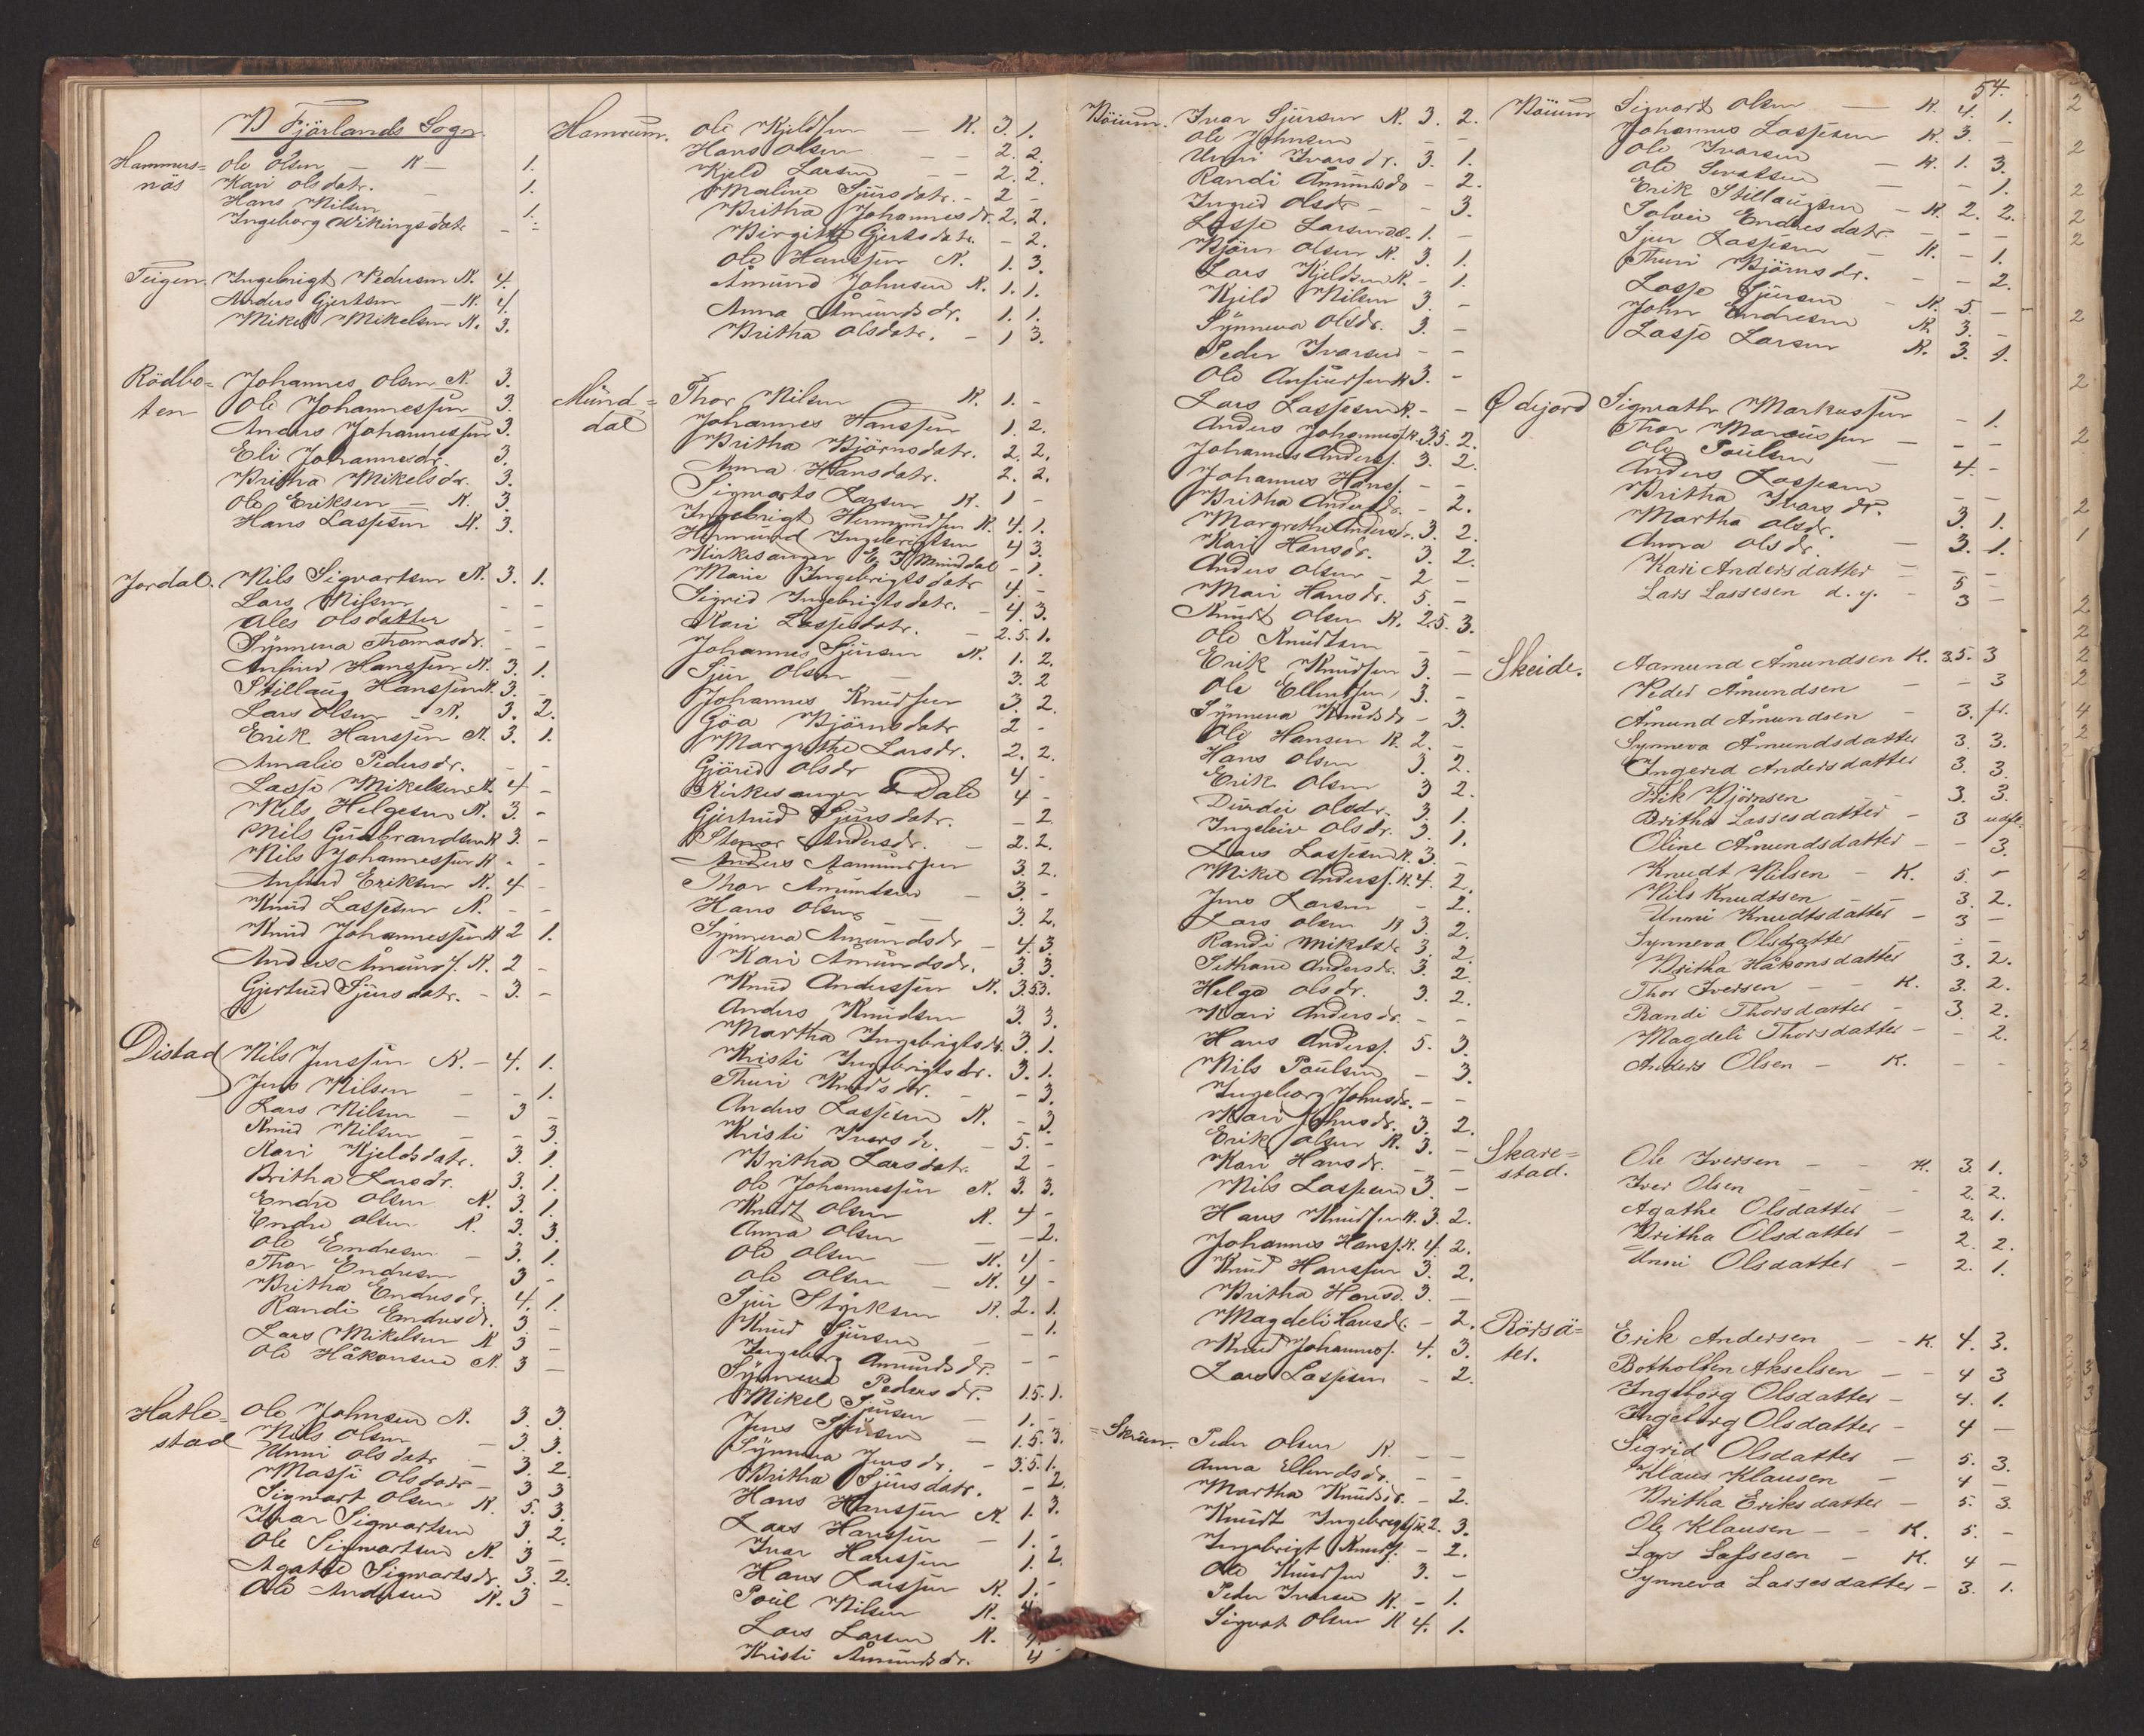 B Fjörlands Sogn.
Hammers= Ole Olsen — K — 1.
näs Kari Olsdatr. — 1.
Hans Nilsen 1.
Ingeborg Wikingsdatr — -
Teigen. Ingebrigt Pedersen K. 4.
Anders Gjertsen — K. 4.
Mikel Mikelsen K. 3.
Rödbo= Johannes Olsen K. 3.
ten Ole Johannessen 3.
Anders Johannessen 3.
Eli Johannesdr. 3.
Britha Mikelsdr. 3.
Ole Eriksen — K. 3.
Hans Lassesen K. 3.
Jordal. Nils Sigvartsen K. 3. 1.
Lars Nilsen - -
Ales Olsdatter - -
Synneva Thomasdr. - -
Anfind Hanssen K. 3. 1.
Stillaug Hanssen K. 3. -
Lars Olsen - K. 3. 2.
Erik Hanssen K. 3. 1.
Amalie Pedersdr. - -
Lasse Mikelsen K. 4 -
Nils Helgesen K. 3. -
Nils Gudbrandsen K 3. -
Nils Johannessen K - -
Anfind Eriksen K. 4 -
Knud Lassesen K. - -
Knud Johannessen K 2 1.
Anders Åmunds. K. 2 -
Gjertrud Sjursdatr. - 3. -
Distad Nils Jenssen K. - 4. 1.
Jens Nilsen - - 1.
Lars Nilsen — 3 -
Knud Nilsen - - 3.
Kari Kjeldsdatr. 3. 1.
Britha Larsdr. 3. 1.
Endre Olsen K. 3. 1.
Endre Olsen K. 3. 3.
Ole Endresen — 3. 1.
Thor Endresen 3 -
Britha Endresdr. 4. 1.
Randi Endresdr. 3 -
Lars Mikelsen K 3 -
Ole Håkonsen K. 3 —
Hatle= Ole Johnsen K. 3. 3.
stad Nils Olsen — 3. 3.
Unni Olsdatr — 3. 2.
Massi Olsdatr — 3 3
Sigvart Olsen K. 5. 3.
Ivar Sigvartsen 3. 2.
Ole Sigvartsen K. 3 —
Agathe Sigvartsdr. 3. 2.
Ole Andersen K. 3 —
Hamrum. Ole Kjeldsen — K. 3. 1.
Hans Olsen — — 2. 2.
Kjeld Larsen — — 2. 2.
Maline Sjursdatr. - 2 -
Britha Johannesdr. 2. 2.
Birgitte Gjertsdatr. - 2.
Ole Hanssen K. 1. 3.
Åmund Johnsen K. 1. 1.
Anna Åmundsdr. 1. 1.
Britha Olsdatr. - 1 3.
Mund= Thor Nilsen K. 1. -
dal Johannes Hanssen 1. 2.
Britha Björnsdatr. 2. 2.
Anna Hansdatr. 2. 2.
Sigvarts Larsen K. 1 -
Ingebrigt Hermundsen K. 4. 1.
Hermund Ingebrigtsen 4 3.
Kirkesanger E. I. Munddal - 1.
Marie Ingebrigtsdatr 4. -
Sigrid Ingebrigtsdatr. - 4 3.
Kari Lassesdatr. - 2.5. 1.
Johannes Sjursen K. 1. 2.
Sjur Olsen — 3. 2
Johannes Knudsen 3. 2.
Göa Björnsdatr 2 -
Margrethe Larsdr. 2. 2.
Gjörid Olsdr 4 -
Kirkesanger Dale 4 -
Gjertrud Sjursdatr. - 2
Andersdr. — 2. 2.
Anders Aamundsen 3. 2.
Thor Amundsen — 3. -
Hans Olsen — — 3 2.
Synneva Amundsdr — 4. 3.
Kari Åmundsdr. 3. 3.
Knud Anderssen K. 3.5 3.
Anders Knudsen 3. 3.
Martha Ingebrigtsdr. 3. 1.
Kristi Ingebrigtsdr. 3. 1.
Thuri Knudsdr. - - 3.
Anders Lassesen K. - 3.
Kristi Iversdr. — 5. -
Britha Larsdatr. 2 -
Ole Johannessen K. 3. 3.
Knudt Olsen K. 4 -
Anna Olsen — - 2.
Ole Olsen — K. 4 -
Ole Olsen — K. 4 -
Sjur Styrksen K. 2. 1.
Knud Sjursen — - 1.
Ingeborg Amundsdr. - -
Synneva Pedersdr. 1.5. 1.
Mikel Sjursen — 1. -
Jens Sjursen — 1.5. 3.
Synneva Jensdr. - 3.5. 1.
Britha Sjursdatr. - 2
Hans Hanssen K. 1. 3.
Lars Hanssen — 1. -
Ivar Hanssen 1. 2.
Hans Larssen K. 1. -
Poul Nilsen K. 4.
Lars Larsen K. 4.
Kristi Åmundsdr. 4
54.
Böium. Ivar Sjursen K. 3. 2.
Ole Johnsen - -
Unni Ivarsdr. 3. 1.
Randi Åmundsdr - 2.
Ingrid Olsdr - - 3.
Lasse Larsen 1. -
Björn Olsen K. 3. 1.
Lars Kjeldsen K. - 1.
Kjeld Nilsen 3 -
Synneva Olsdr. 3. -
Peder Ivarsen - -
Ole Anfindsen K 3. -
Lars Lassesen K. - -
Anders Johanness. K. 3.5. 2.
Johannes Anderss. 3. 2.
Johannes Hanss. - -
Britha Andersdr. - 2.
Margrethe Andersdr. 3. 2.
Kari Hansdr. 3. 2.
Anders Olsen - 2 -
Mari Hansdr. 5. -
Knudt Olsen K. 2.5. 3.
Ole Knudtsen - -
Erik Knudsen 3. -
Ole Ellendsen 3. -
Synneva Knudsdr - 3.
Ole Hansen K. 2. -
Hans Olsen 3. 2.
Erik Olsen 3 2.
Durdei Olsdr. 3. 1.
Ingeleiv Olsdr. 3. 1.
Lars Lassesen K. 3. -
Mikel Anderss. K. 4. 2.
Jens Larsen - 2.
Lars Olsen K 3. 2.
Randi Mikelsdr 3. 2.
Andersdr. 3. 2.
Helge Olsdr. 3. 2.
Kari Andersdr. - -
Hans Anderss. 5. 3.
Nils Poulsen - 3.
Ingeborg Johnsdr. - -
Kari Johnsdr. 3. 2.
Erik Olsen K. 3. -
Kari Hansdr. - -
Nils Lassesen 3. -
Hans Knudsen K. 3. 2.
Johannes Hanss. K. 4. 2.
Knud Hanssen 3. 2.
Britha Hansd. 3. —
Magdeli Hansdr. - 2.
Knud Johanness. 4. 3.
Lars Lassesen - 2.
Peder Olsen K — —
Anna Ellendsdr. - -
Martha Knudsdr. - 2.
Knudt Ingebrigts. K 2. 3.
Ingebrigt Knuds. - 2.
Ole Knudsen 3. -
Peder Ivarsen K. - 1.
Sigvat Olsen K 4. 1.
Böium Sigvart Olsen — K. 4. 1.
Johannes Lassesen K. 3. —
Ole Ivarsen — K. 1. 3.
Ole Sivatsen — - 1.
Erik Stillaugsen — K. 2. 2.
Solvei Endresdatr. - - -
Sjur Lassesen K. - 1.
Thuri Björnsdr. - - 2.
Lasse Sjursen — K. 5. —
John Endresen K. 3. —
Lasse Larsen K. 3. 1.
Ødejord Sigvath Markussen - 1.
Thor Marcussen — - -
Ole Poulsen — 4. -
Anders Lassesen — -
Britha Ivarsdr. 3. 1.
Martha Olsdr. 3. 1.
Anna Olsdr. — - -
Kari Andersdatter — 5 -
Lars Lassesen d. y. - 3 -
Skeide. Aamund Åmundsen K. 3.5. 3
Peder Åmundsen — - 3
Åmund Åmundsen — 3. fl.
Synneva Åmundsdatter 3. 3.
Ingered Andersdatter 3. 3.
Erik Björnsen — 3. 3.
Britha Lassesdatter — 3 udfl.
Oline Åmundsdatter — - 3.
Knudt Nilsen — K. 5. -
Nils Knudtsen — 3. 2.
Unni Knudtsdatter — 3 —
Synneva Olsdatter - -
Britha Håkonsdatter 3. 2.
Thor Iversen — K. 3. 2.
Randi Thorsdatter — 3. 2.
Magdeli Thorsdatter — - 2.
Anders Olsen — K. - -
Skare= Ole Iversen — — K. 3. 1.
stad. Iver Olsen — — 2. 2.
Agathe Olsdatter — 2. 1.
Britha Olsdatter — 2. 2.
Unni Olsdatter — 2. 1.
Rörsä= Erik Andersen — K. 4. 3.
ter. Botholten Akselsen — 4 3
Ingeborg Olsdatter — 4. 1.
Ingeborg Olsdatter — 4 —
Sigrid Olsdatter — 5. 3.
Klaus Klausen — 4 —
Britha Eriksdatter — 5. 3.
Ole Klausen — — K. 5. -
Lars Lassesen — K. 4 —
Synneva Lassesdatter — 3. 1.